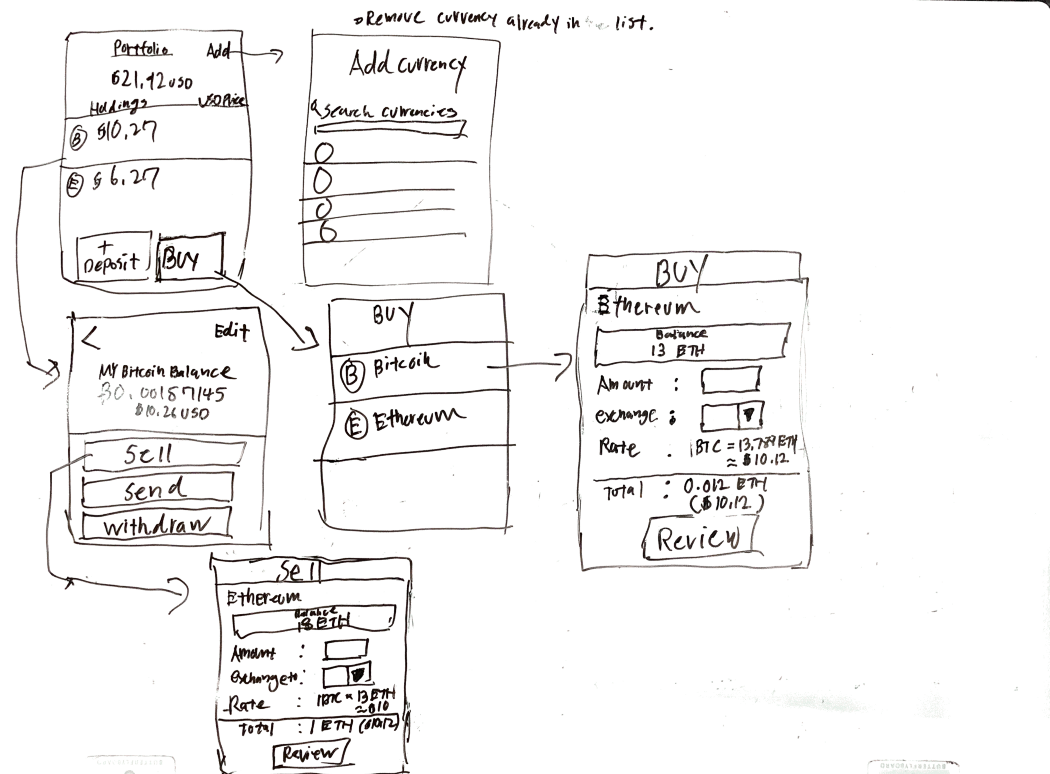 Remove currency already in the list.
Portfolio
Add
$21,92 USD
Holdings
USD Price
B $10,27
E $6,27
+
Deposit
BUY
Add currency
Search currencies
<
Edit
MY Bitcoin Balance
B0.00187145
$10.26 USD
Sell
Send
withdraw
BUY
B Bitcoin
E Ethereum
BUY
Ethereum
Balance
13 ETH
Amount :
exchange :
Rate : 1BTC = 13,789 ETH
≈ $10.12
Total : 0.012 ETH
($10,12)
Review
Sell
Ethereum
Balance
18 ETH
Amount :
exchange to :
Rate : 1BTC = 13 ETH
≈ $10
Total : 1 ETH
Review